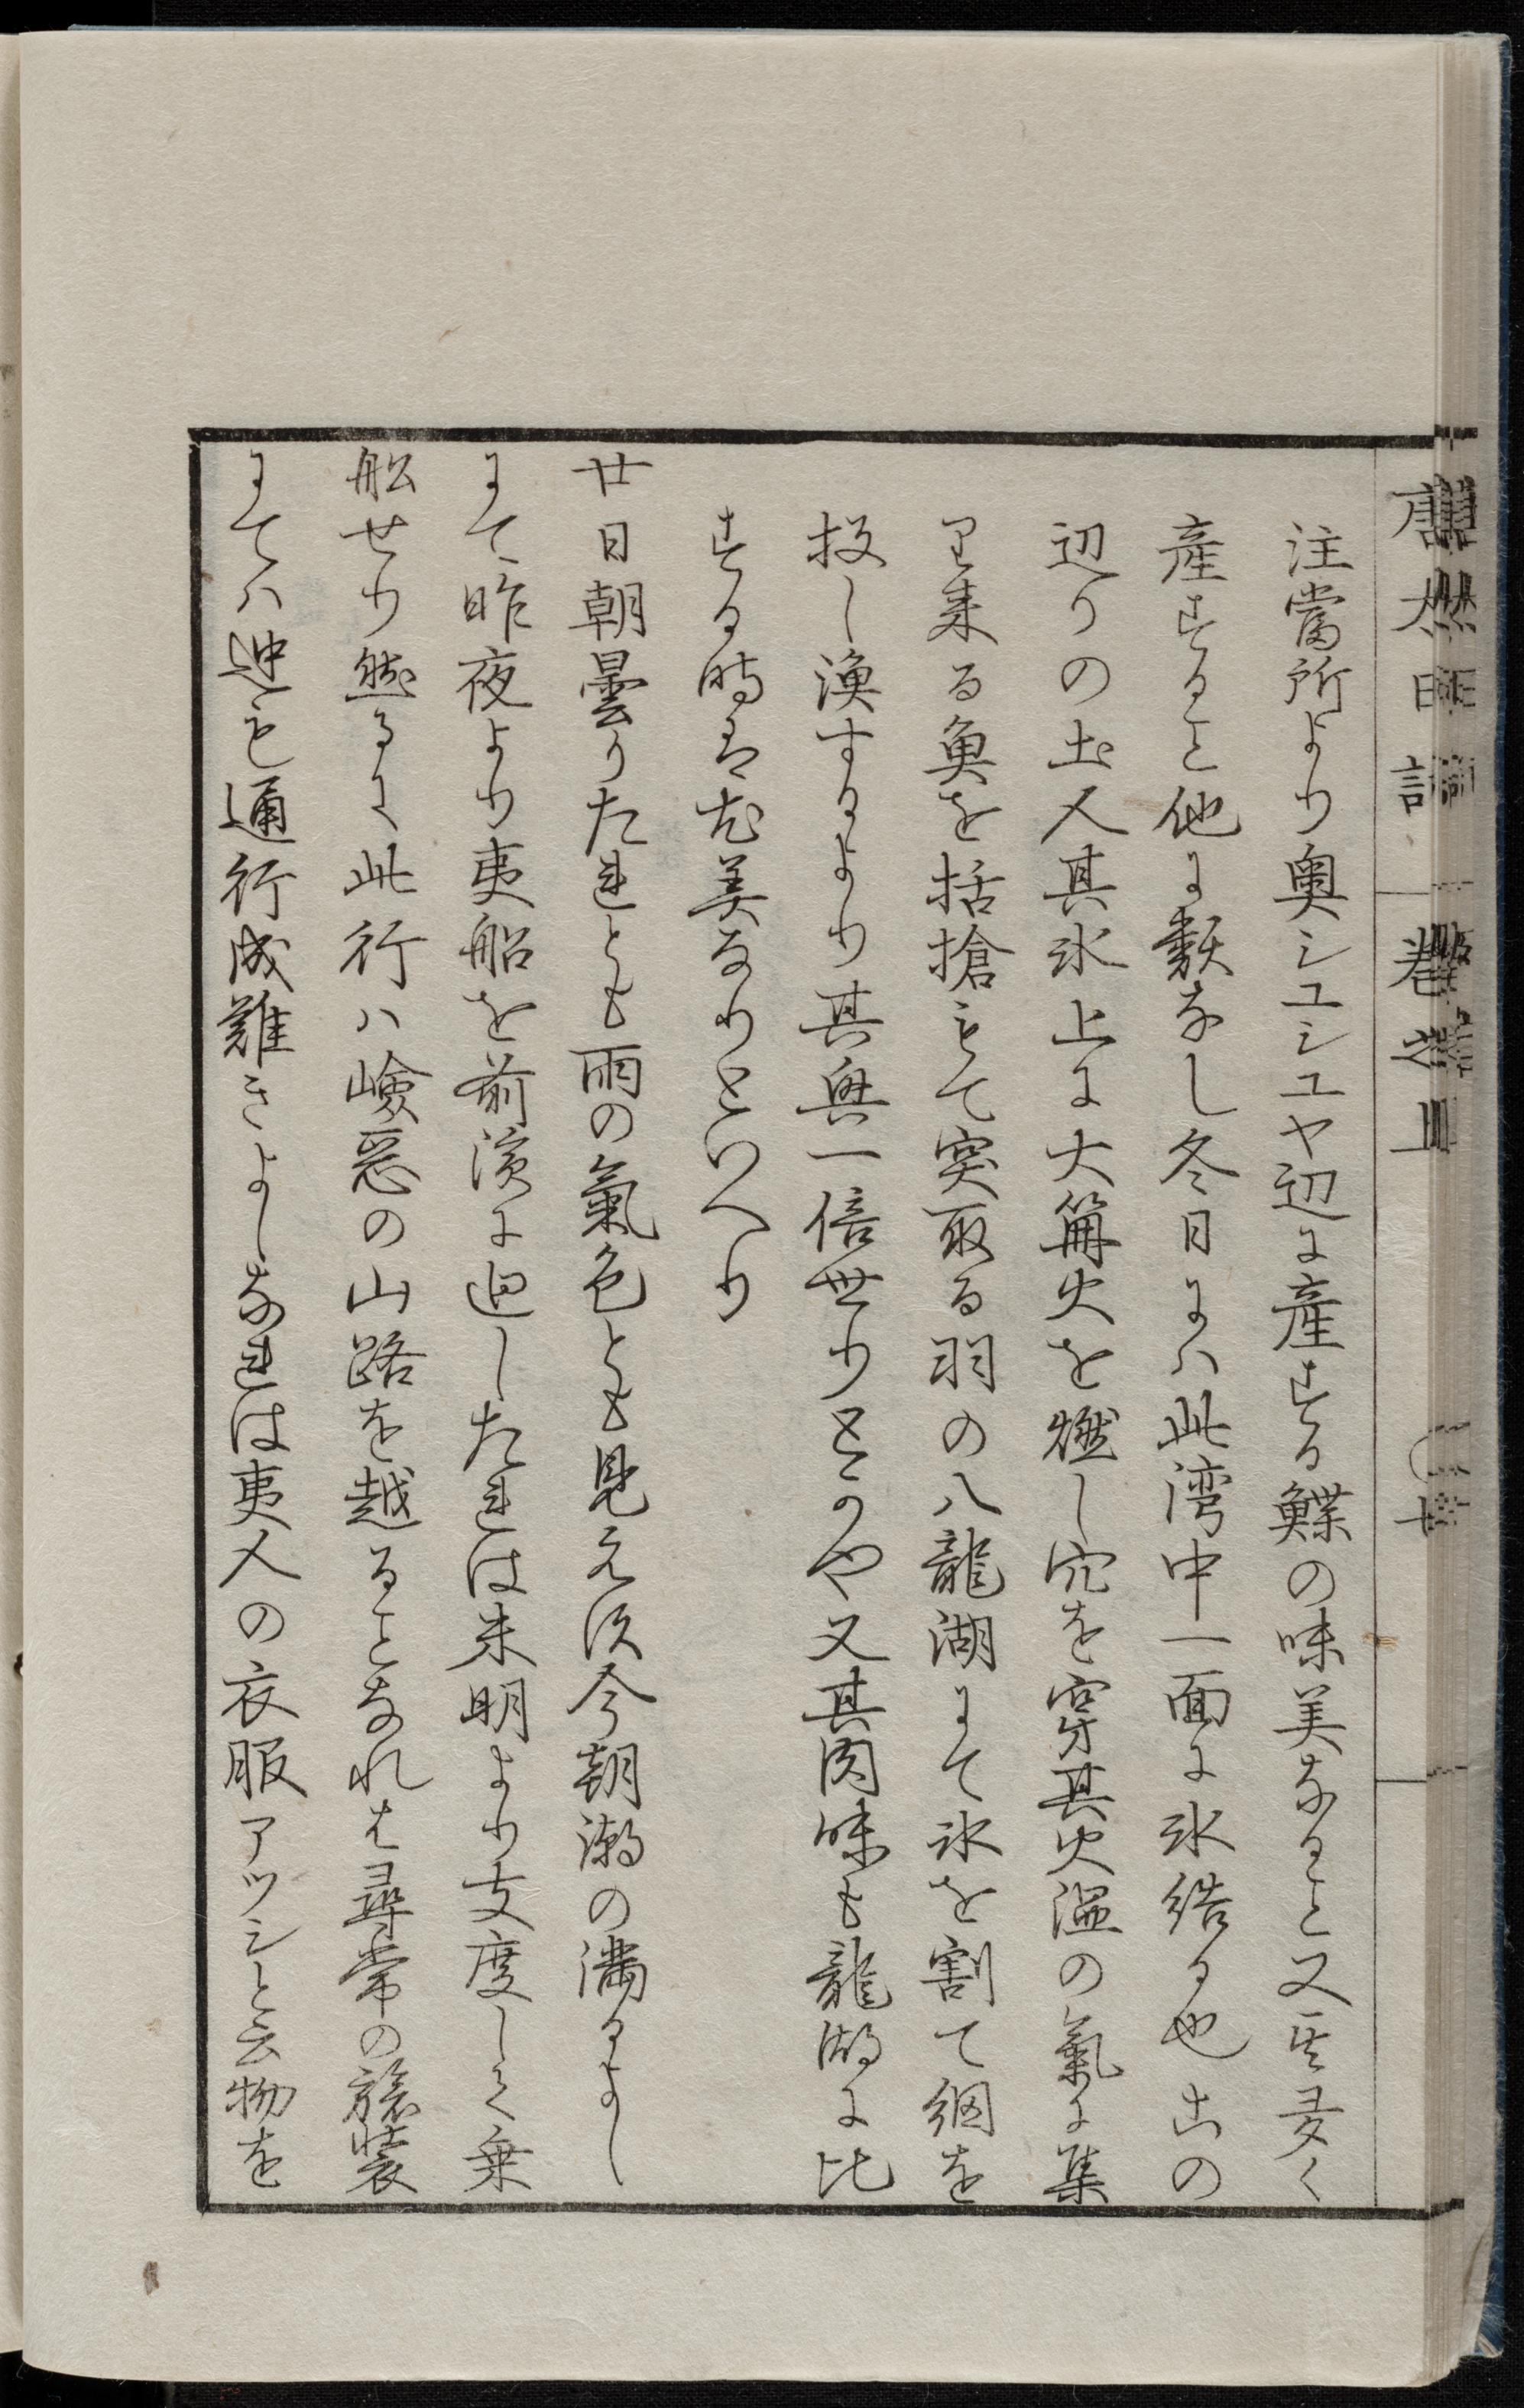 唐太日記 卷之上 十
注當所より奥シユシユヤ辺に産する鰈の味美なること又其夛く
産すること他に類なし冬日にハ此湾中一面に氷結る也この
辺りの土人其氷上に大篝火を燃し穴を穿其火温の氣に集
り来る魚を括搶もて突取る羽の八龍湖にて氷を割て網を
投し漁するより其興一倍せりとかや又其肉味も龍湖に比
する時は尤美なりといへり
廿日朝曇りたれとも雨の氣色とも見えす今朝潮の満るよし
にて昨夜より夷船を前濱に迴したれは未明より支度して乗
舩せり然るに此行ハ嶮惡の山路を越ることなれは尋常の旅装
にてハ迚も通行成難きよしなれは夷人の衣服アツシと云物を